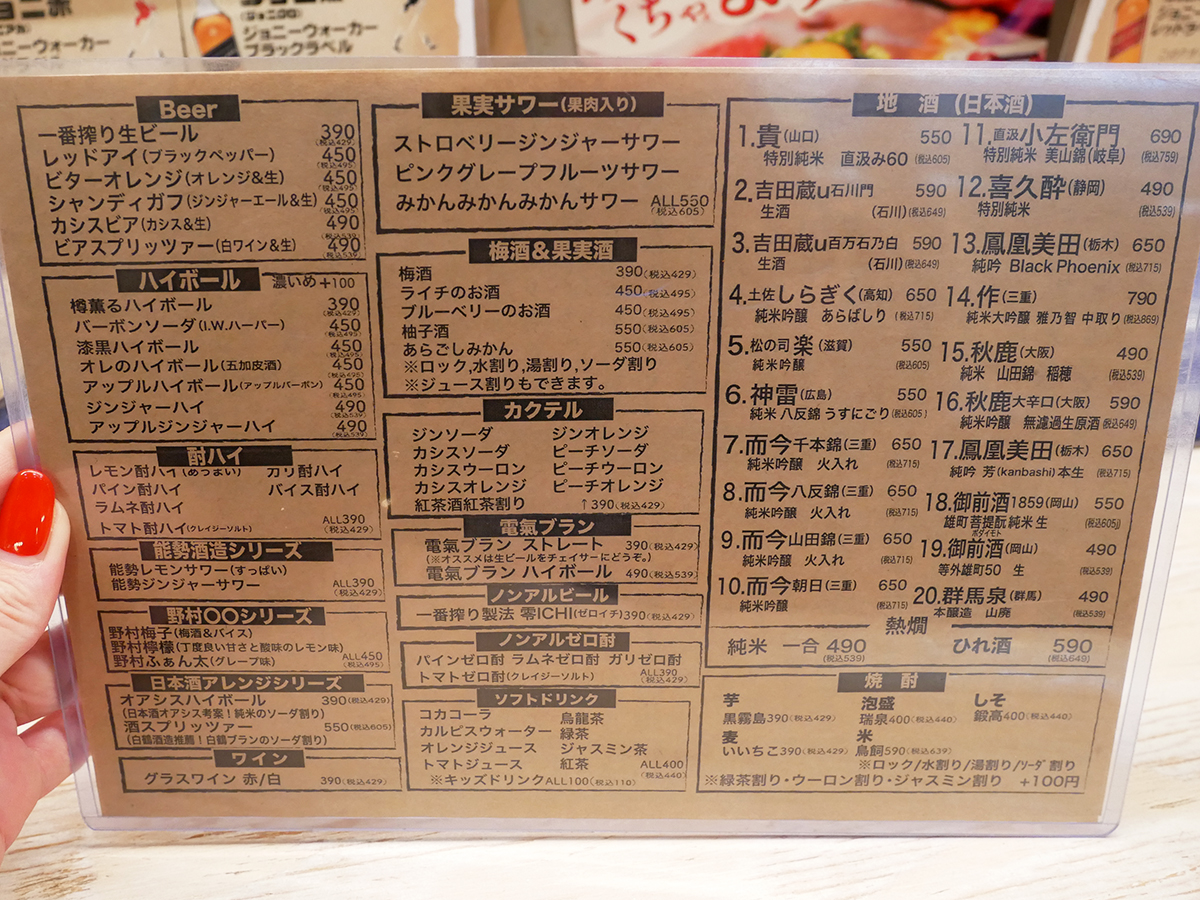 ジョニーウォーカー
ジョニーウォーカー
ブラックラベル
くちゃ
Beer
一番搾り生ビール 390 (税込429)
レッドアイ(ブラックペッパー) 450 (税込495)
ビターオレンジ(オレンジ&生) 450 (税込495)
シャンディガフ(ジンジャーエール&生) 450 (税込495)
カシスビア(カシス&生) 490 (税込539)
ビアスプリッツァー(白ワイン&生) 490 (税込539)
ハイボール 濃いめ+100
樽薫るハイボール 390 (税込429)
バーボンソーダ(I.W.ハーパー) 450 (税込495)
漆黒ハイボール 450 (税込495)
オレのハイボール(五加皮酒) 450 (税込495)
アップルハイボール(アップルバーボン) 450 (税込495)
ジンジャーハイ 490 (税込539)
アップルジンジャーハイ 490 (税込539)
酎ハイ
レモン酎ハイ(あっまい) ガリ酎ハイ
パイン酎ハイ バイス酎ハイ
ラムネ酎ハイ
トマト酎ハイ(クレイジーソルト) ALL390 (税込429)
能勢酒造シリーズ
能勢レモンサワー(すっぱい)
能勢ジンジャーサワー ALL390 (税込429)
野村〇〇シリーズ
野村梅子(梅酒&バイス)
野村檸檬(丁度良い甘さと酸味のレモン味)
野村ふぁん太(グレープ味) ALL450 (税込495)
日本酒アレンジシリーズ
オアシスハイボール 390(税込429)
(日本酒オアシス考案!純米のソーダ割り)
酒スプリッツァー 550(税込605)
(白鶴酒造推薦!白鶴ブランのソーダ割り)
ワイン
グラスワイン 赤/白 390(税込429)
果実サワー(果肉入り)
ストロベリージンジャーサワー
ピンクグレープフルーツサワー
みかんみかんみかんサワー ALL550 (税込605)
梅酒&果実酒
梅酒 390(税込429)
ライチのお酒 450(税込495)
ブルーベリーのお酒 450(税込495)
柚子酒 550(税込605)
あらごしみかん 550(税込605)
※ロック,水割り,湯割り,ソーダ割り
※ジュース割りもできます。
カクテル
ジンソーダ ジンオレンジ
カシスソーダ ピーチソーダ
カシスウーロン ピーチウーロン
カシスオレンジ ピーチオレンジ
紅茶酒紅茶割り ↑390(税込429)
電氣ブラン
電氣ブラン ストレート 390(税込429)
(※オススメは生ビールをチェイサーにどうぞ。)
電氣ブラン ハイボール 490(税込539)
ノンアルビール
一番搾り製法 零ICHI(ゼロイチ)390(税込429)
ノンアルゼロ酎
パインゼロ酎 ラムネゼロ酎 ガリゼロ酎
トマトゼロ酎(クレイジーソルト) ALL390 (税込429)
ソフトドリンク
コカコーラ 烏龍茶
カルピスウォーター 緑茶
オレンジジュース ジャスミン茶
トマトジュース 紅茶 ALL400 (税込440)
※キッズドリンクALL100(税込110)
地酒(日本酒)
1.貴(山口) 550
特別純米 直汲み60 (税込605)
2.吉田蔵u石川門 590
生酒 (石川)(税込649)
3.吉田蔵u百万石乃白 590
生酒 (石川)(税込649)
4.土佐しらぎく(高知) 650
純米吟醸 あらばしり (税込715)
5.松の司 楽(滋賀) 550
純米吟醸 (税込605)
6.神雷(広島) 550
純米 八反錦 うすにごり(税込605)
7.而今千本錦(三重) 650
純米吟醸 火入れ (税込715)
8.而今八反錦(三重) 650
純米吟醸 火入れ (税込715)
9.而今山田錦(三重) 650
純米吟醸 火入れ (税込715)
10.而今朝日(三重) 650
純米吟醸 (税込715)
11.直汲小左衛門 690
特別純米 美山錦(岐阜) (税込759)
12.喜久酔(静岡) 490
特別純米 (税込539)
13.鳳凰美田(栃木) 650
純吟 Black Phoenix (税込715)
14.作(三重) 790
純米大吟醸 雅乃智 中取り(税込869)
15.秋鹿(大阪) 490
純米 山田錦 稲穂 (税込539)
16.秋鹿大辛口(大阪) 590
純米吟醸 無濾過生原酒(税込649)
17.鳳凰美田(栃木) 650
純吟 芳(kanbashi)本生 (税込715)
18.御前酒1859(岡山) 550
雄町菩提酛純米 生 (税込605)
ボダイモト
19.御前酒(岡山) 490
等外雄町50 生 (税込539)
20.群馬泉(群馬) 490
本醸造 山廃 (税込539)
熱燗
純米 一合 490 (税込539) ひれ酒 590 (税込649)
焼酎
芋 泡盛 しそ
黒霧島390(税込429) 瑞泉400(税込440) 鍛高400(税込440)
麦 米
いいちこ390(税込429) 鳥飼590(税込639)
※ロック/水割り/湯割り/ソーダ割り
※緑茶割り・ウーロン割り・ジャスミン割り +100円